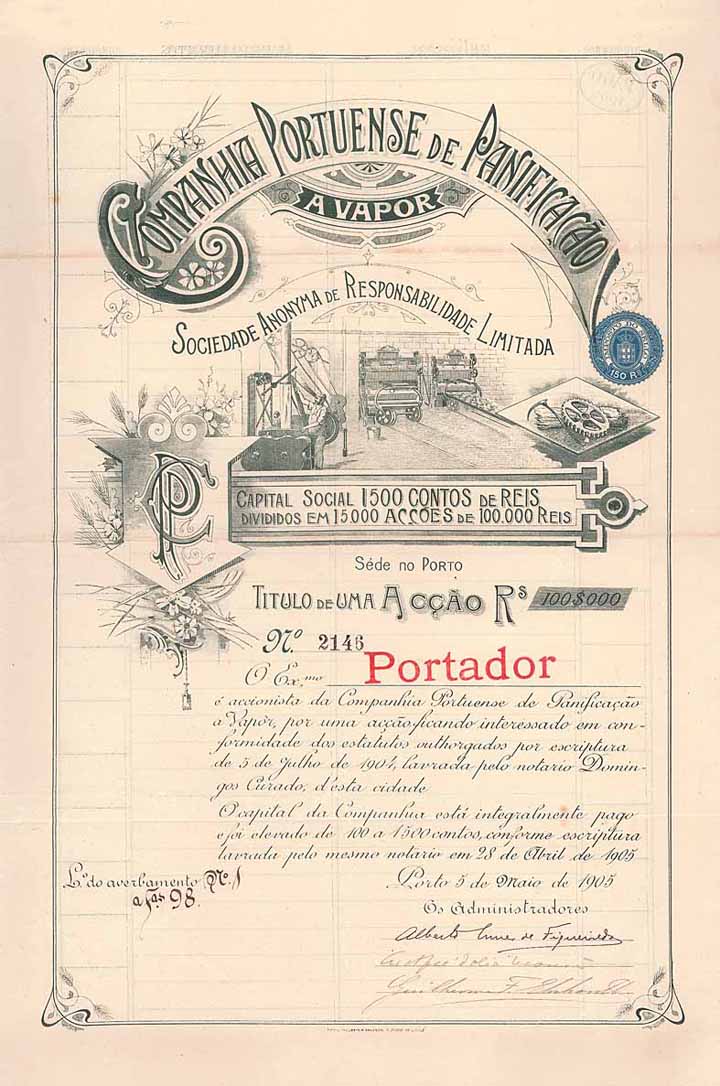 COMPANHIA PORTUENSE DE PANIFICAÇÃO
A VAPOR
SOCIEDADE ANONYMA DE RESPONSABILIDADE LIMITADA
IMPOSTO DO SELLO
150 RS
PC
CAPITAL SOCIAL 1500 CONTOS DE REIS
DIVIDIDOS EM 15000 ACÇÕES DE 100.000 REIS
Séde no Porto
TITULO DE UMA ACÇÃO RS 100$000
Nº 2146
O Ex.mo Portador
é accionista da Companhia Portuense de Panificação
a Vapor, por uma acção ficando interessado em con-
formidade dos estatutos outhorgados por escriptura
de 5 de Julho de 1904, lavrada pelo notario Domin-
gos Curado, d'esta cidade
O capital da Companhia está integralmente pago
e foi elevado de 100 a 1500 contos, conforme escriptura
lavrada pelo mesmo notario em 28 de Abril de 1905
L.º do averbamento Nº 1
a fas 98.
Porto 5 de Maio de 1905
Os Administradores
Alberto Nunes de Figueiredo
Guilherme F.